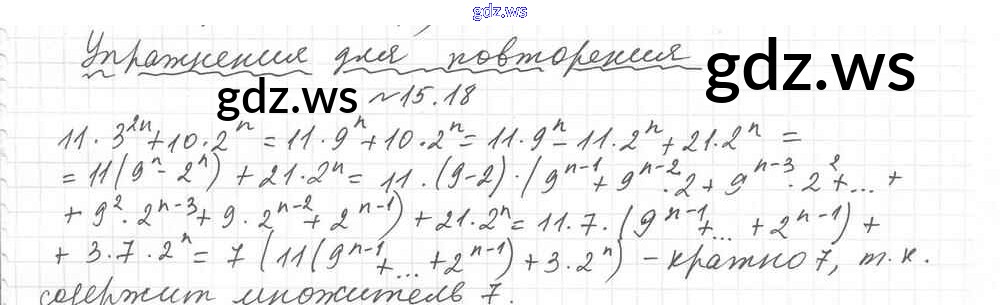 gdz.ws
Упражнения для повторения
gdz.ws
gdz.ws
№15.18
11·3²ⁿ+10·2ⁿ = 11·9ⁿ+10·2ⁿ = 11·9ⁿ-11·2ⁿ+21·2ⁿ =
= 11(9ⁿ-2ⁿ) + 21·2ⁿ = 11·(9-2)·(9ⁿ⁻¹+9ⁿ⁻²·2+9ⁿ⁻³·2²+...+
+ 9²·2ⁿ⁻³+9·2ⁿ⁻²+2ⁿ⁻¹) + 21·2ⁿ = 11·7·(9ⁿ⁻¹+...+2ⁿ⁻¹) +
+ 3·7·2ⁿ = 7(11(9ⁿ⁻¹+...+2ⁿ⁻¹)+3·2ⁿ) - кратно 7, т.к.
содержит множитель 7.